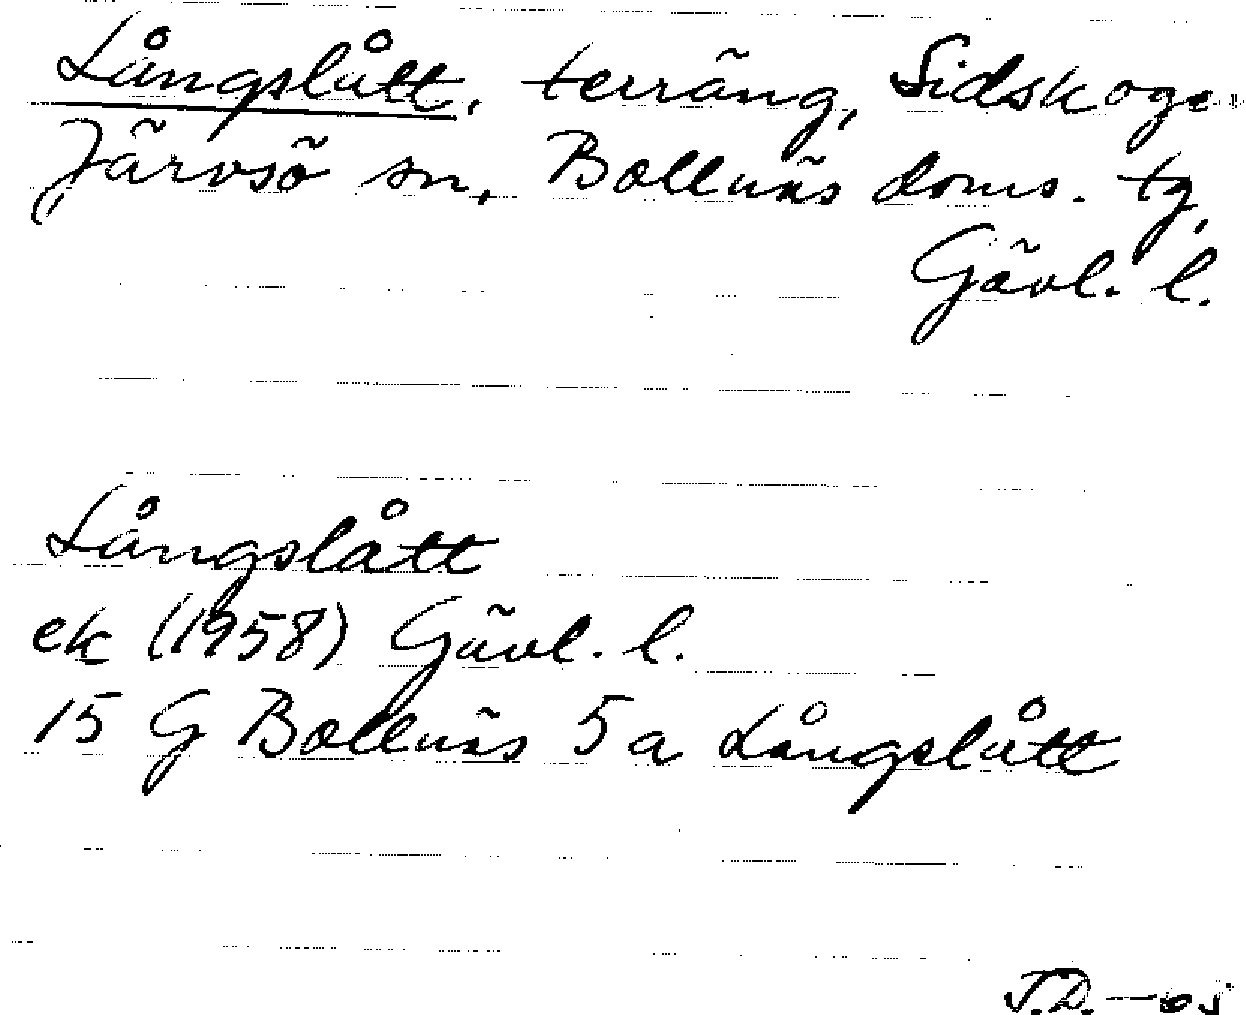 Långslått, terräng, Sidskogen
Järvsö sn, Bollnäs doms. tg,
Gävl. l.
Långslått
ek (1958) Gävl. l.
15 G Bollnäs 5 a Långslått
J.D. -05